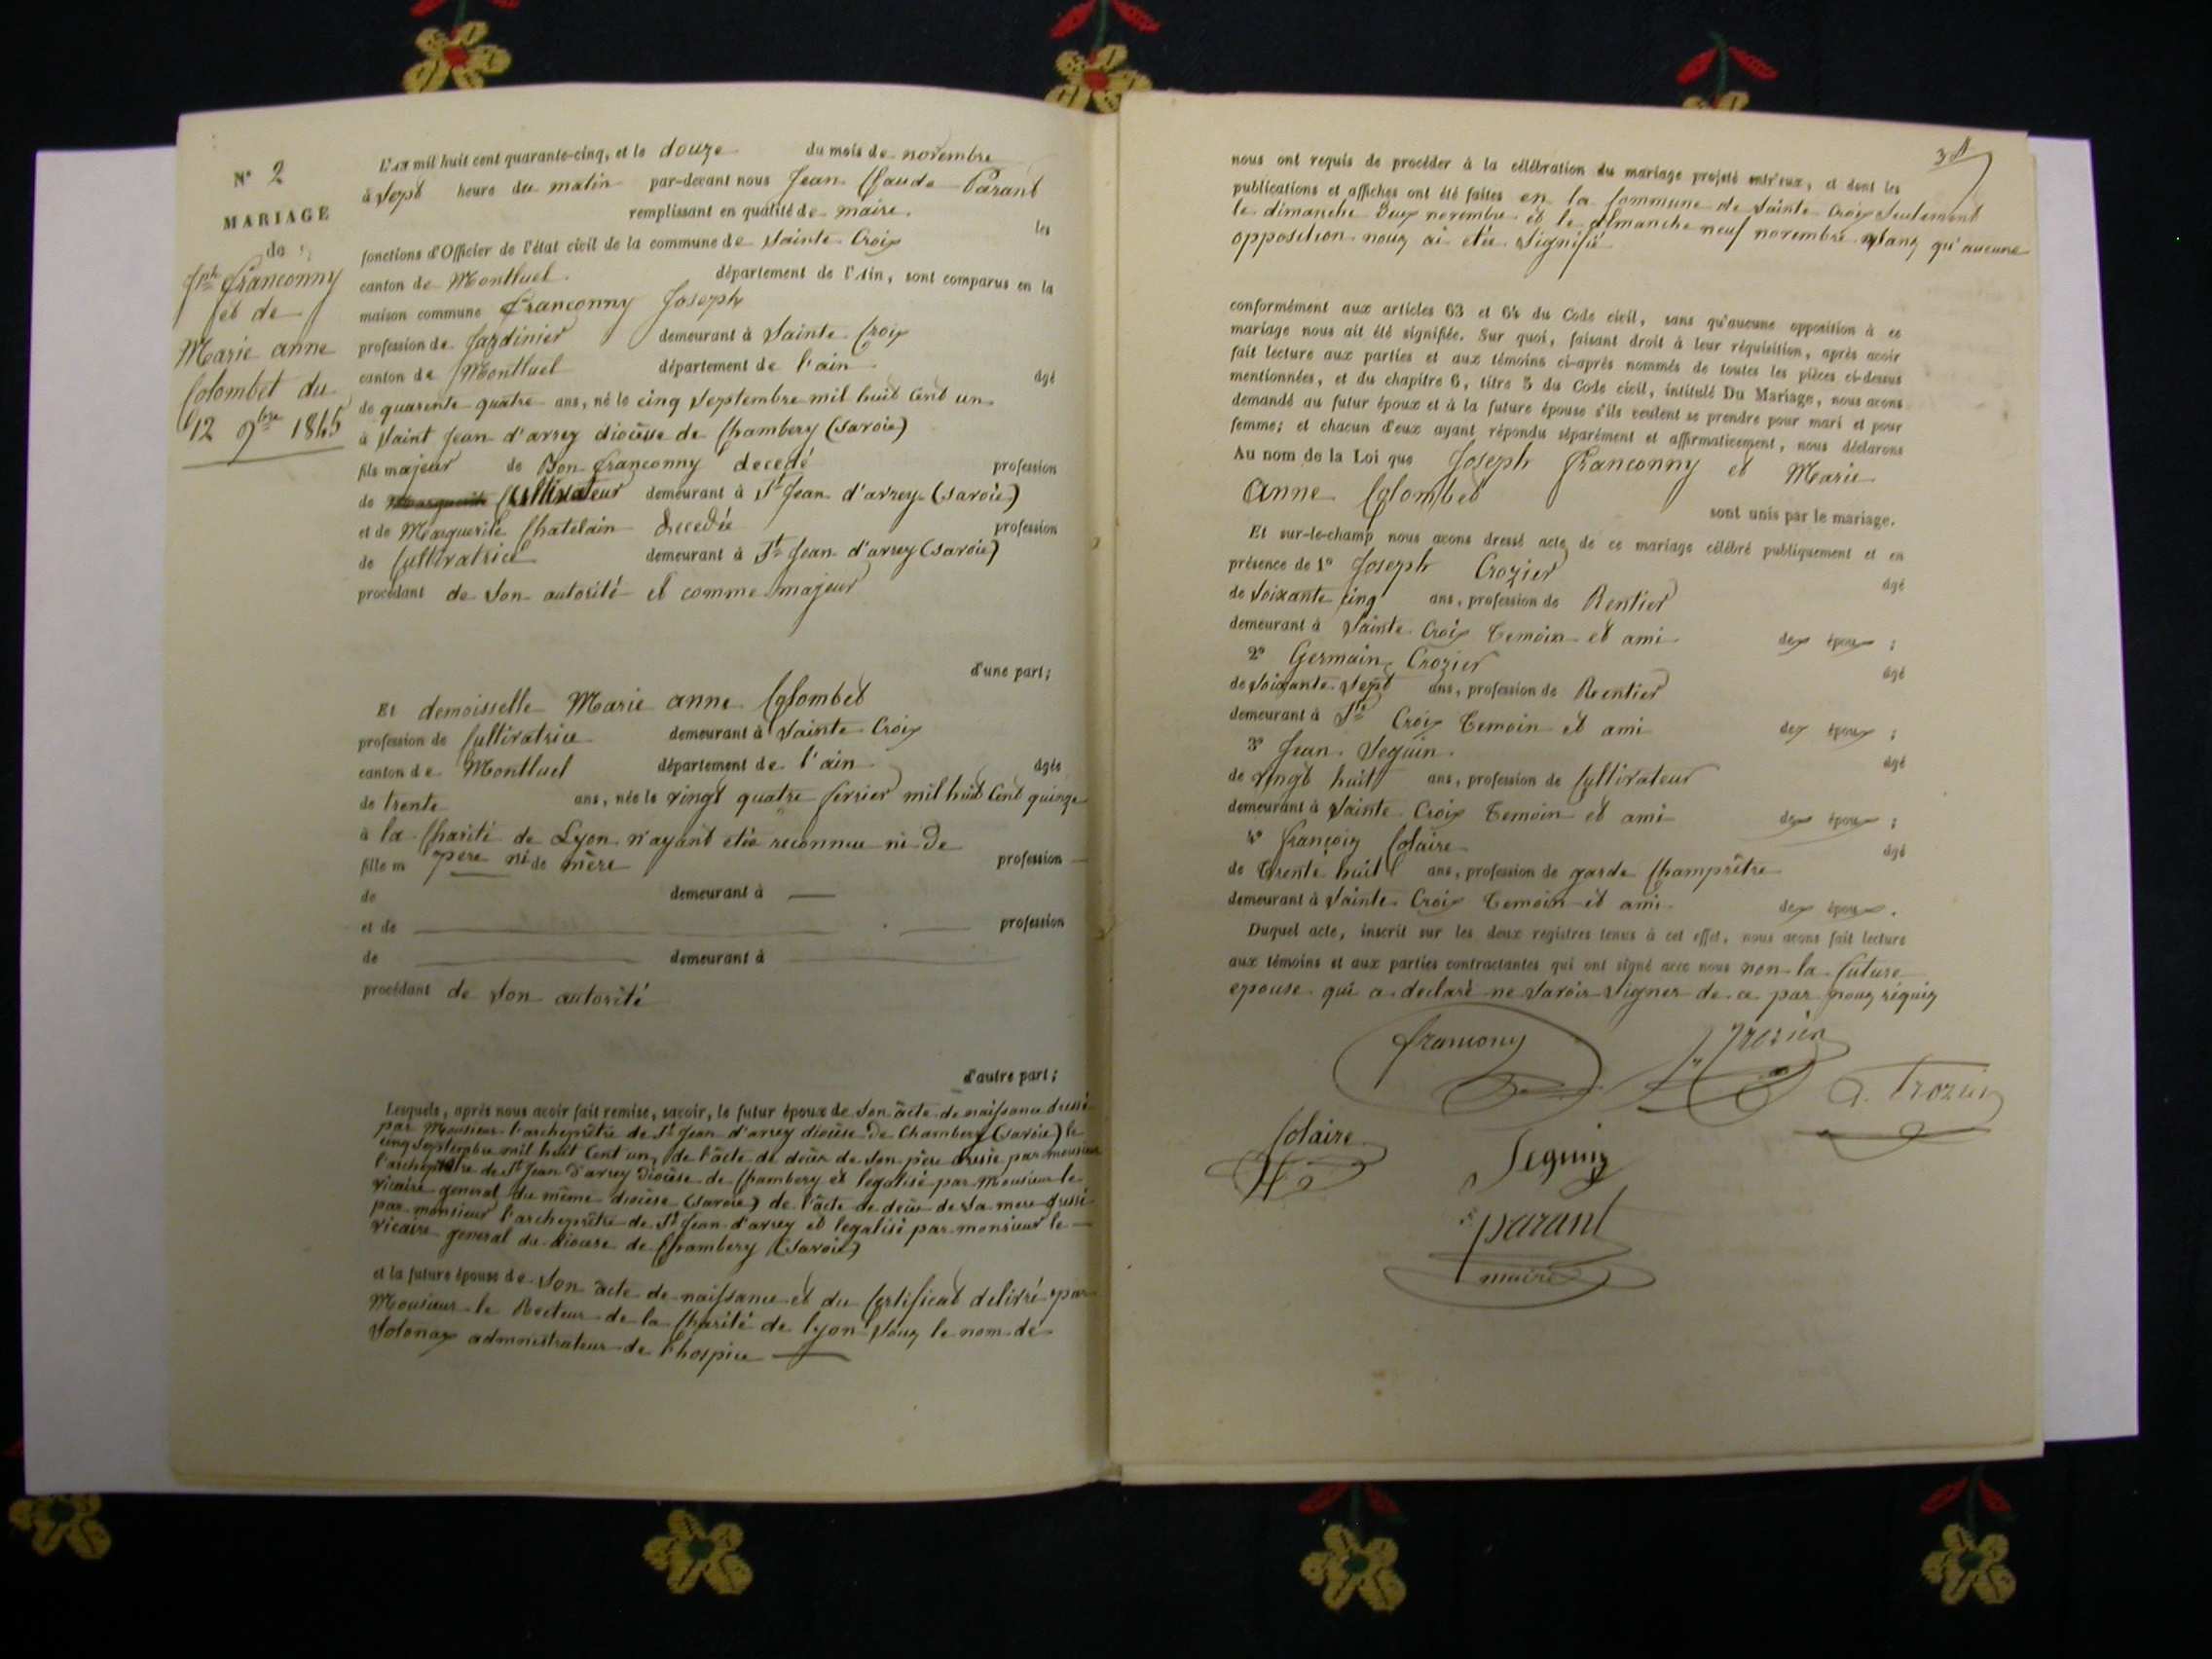 N° 2
MARIAGE
de
Jph Franconny
et de
Marie anne
Colombet du
12 9bre 1845
L'AN mil huit cent quarante-cinq, et le douze du mois de novembre
à Sept heure du matin par-devant nous Jean Claude Parant
remplissant en qualité de maire. les
fonctions d'Officier de l'état civil de la commune de Sainte Croix
canton de Montluel. département de l'Ain, sont comparus en la
maison commune Franconny Joseph
profession de Jardinier demeurant à Sainte Croix
canton de Montluel département de l'ain âgé
de quarente quatre ans, né le cinq Septembre mil huit Cent un
à Saint Jean d'arvey diocèsse de Chambery (Savoie)
fils majeur de Bon Franconny decedé profession
de Cultivateur demeurant à St Jean d'arvey (Savoie)
et de Marguerite Chatelain decedée profession
de Cultivatrice demeurant à St Jean d'arvey (Savoie)
procédant de Son autorité et comme majeur
d'une part;
Et demoisselle Marie anne Colombet
profession de Cultivatrice demeurant à Sainte Croix
canton de Montluel département de l'ain âgée
de trente ans, née le vingt quatre fevrier mil huit Cent quinze
à la Charité de Lyon n'ayant etée reconnue ni de
fille m père ni de mère profession
de demeurant à
et de profession
de demeurant à
procédant de Son autorité
d'autre part;
Lesquels, après nous avoir fait remise, savoir, le futur époux de Son acte de naissance dressé
par Monsieur l'archeprêtre de St Jean d'arvey diocèse de Chambery (Savoie) le
cinq Septembre mil huit Cent un, de l'acte de décès de Son père dressé par monsieur
l'archeprêtre de St Jean d'arvey diocèse de Chambery et legalisé par Monsieur le
vicaire general du même diocèse (Savoie) de l'acte de décès de Sa mere dressé
par monsieur l'archeprêtre de St Jean d'arvey et legalisé par monsieur le
vicaire general du diocese de Chambery (Savoie)
et la future épouse de Son acte de naissance et du Certificat delivré par
Monsieur le Recteur de la Charité de Lyon Sous le nom de
administrateur de l'hospice
nous ont requis de procéder à la célébration du mariage projeté entr'eux, et dont les
publications et affiches ont été faites en la Commune de Sainte Croix Seulement
le dimanche Deux novembre et le dimanche neuf novembre Sans qu'aucune
opposition nous ai etée Signifié
conformément aux articles 63 et 64 du Code civil, sans qu'aucune opposition à ce
mariage nous ait été signifiée. Sur quoi, faisant droit à leur réquisition, après avoir
fait lecture aux parties et aux témoins ci-après nommés de toutes les pièces ci-dessus
mentionnées, et du chapitre 6, titre 5 du Code civil, intitulé Du Mariage, nous avons
demandé au futur époux et à la future épouse s'ils veulent se prendre pour mari et pour
femme; et chacun d'eux ayant répondu séparément et affirmativement, nous déclarons
Au nom de la Loi que Joseph Franconny et Marie
Anne Colombet
sont unis par le mariage.
Et sur-le-champ nous avons dressé acte de ce mariage célébré publiquement et en
présence de 1° Joseph Crozier âgé
de Soixante cinq ans, profession de Rentier
demeurant à Sainte Croix Temoin et ami des époux;
2° Germain Crozier âgé
de Soixante Sept ans, profession de Rentier
demeurant à Ste Croix Temoin et ami des époux;
3° Jean Seguin âgé
de vingt huit ans, profession de Cultivateur
demeurant à Sainte Croix Temoin et ami des époux;
4° François Colaire âgé
de Trente huit ans, profession de garde Champrêtre
demeurant à Sainte Croix Temoin et ami des époux.
Duquel acte, inscrit sur les deux registres tenus à cet effet, nous avons fait lecture
aux témoins et aux parties contractantes qui ont signé avec nous non la future
epouse qui a declaré ne Savoir Signer de ce par nous requis
franconny J. Crozier
G. Crozier
Colaire Seguin
parant
maire